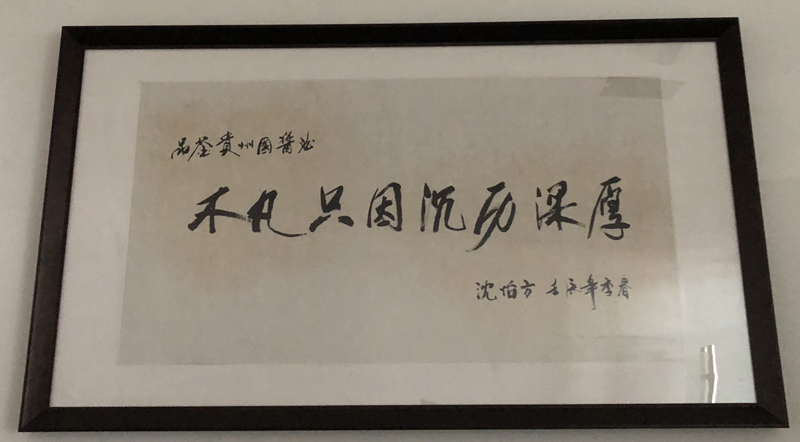 品鉴貴州國醬酒
不凡只因沉历深厚
沈怡方 壬辰年季春